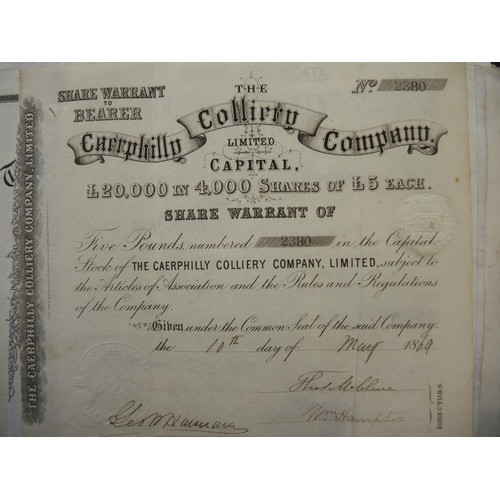 SHARE WARRANT
TO
BEARER
THE
Nº 2380
Caerphilly Colliery Company,
LIMITED.
CAPITAL,
£20,000 IN 4,000 SHARES OF £5 EACH.
SHARE WARRANT OF
Five Pounds, numbered 2380 in the Capital
Stock of THE CAERPHILLY COLLIERY COMPANY, LIMITED, subject to
the Articles of Association and the Rules and Regulations
of the Company.
Given under the Common Seal of the said Company,
the 10th day of May 1869
Wm Hampton
DIRECTORS.
THE CAERPHILLY COLLIERY COMPANY, LIMITED.